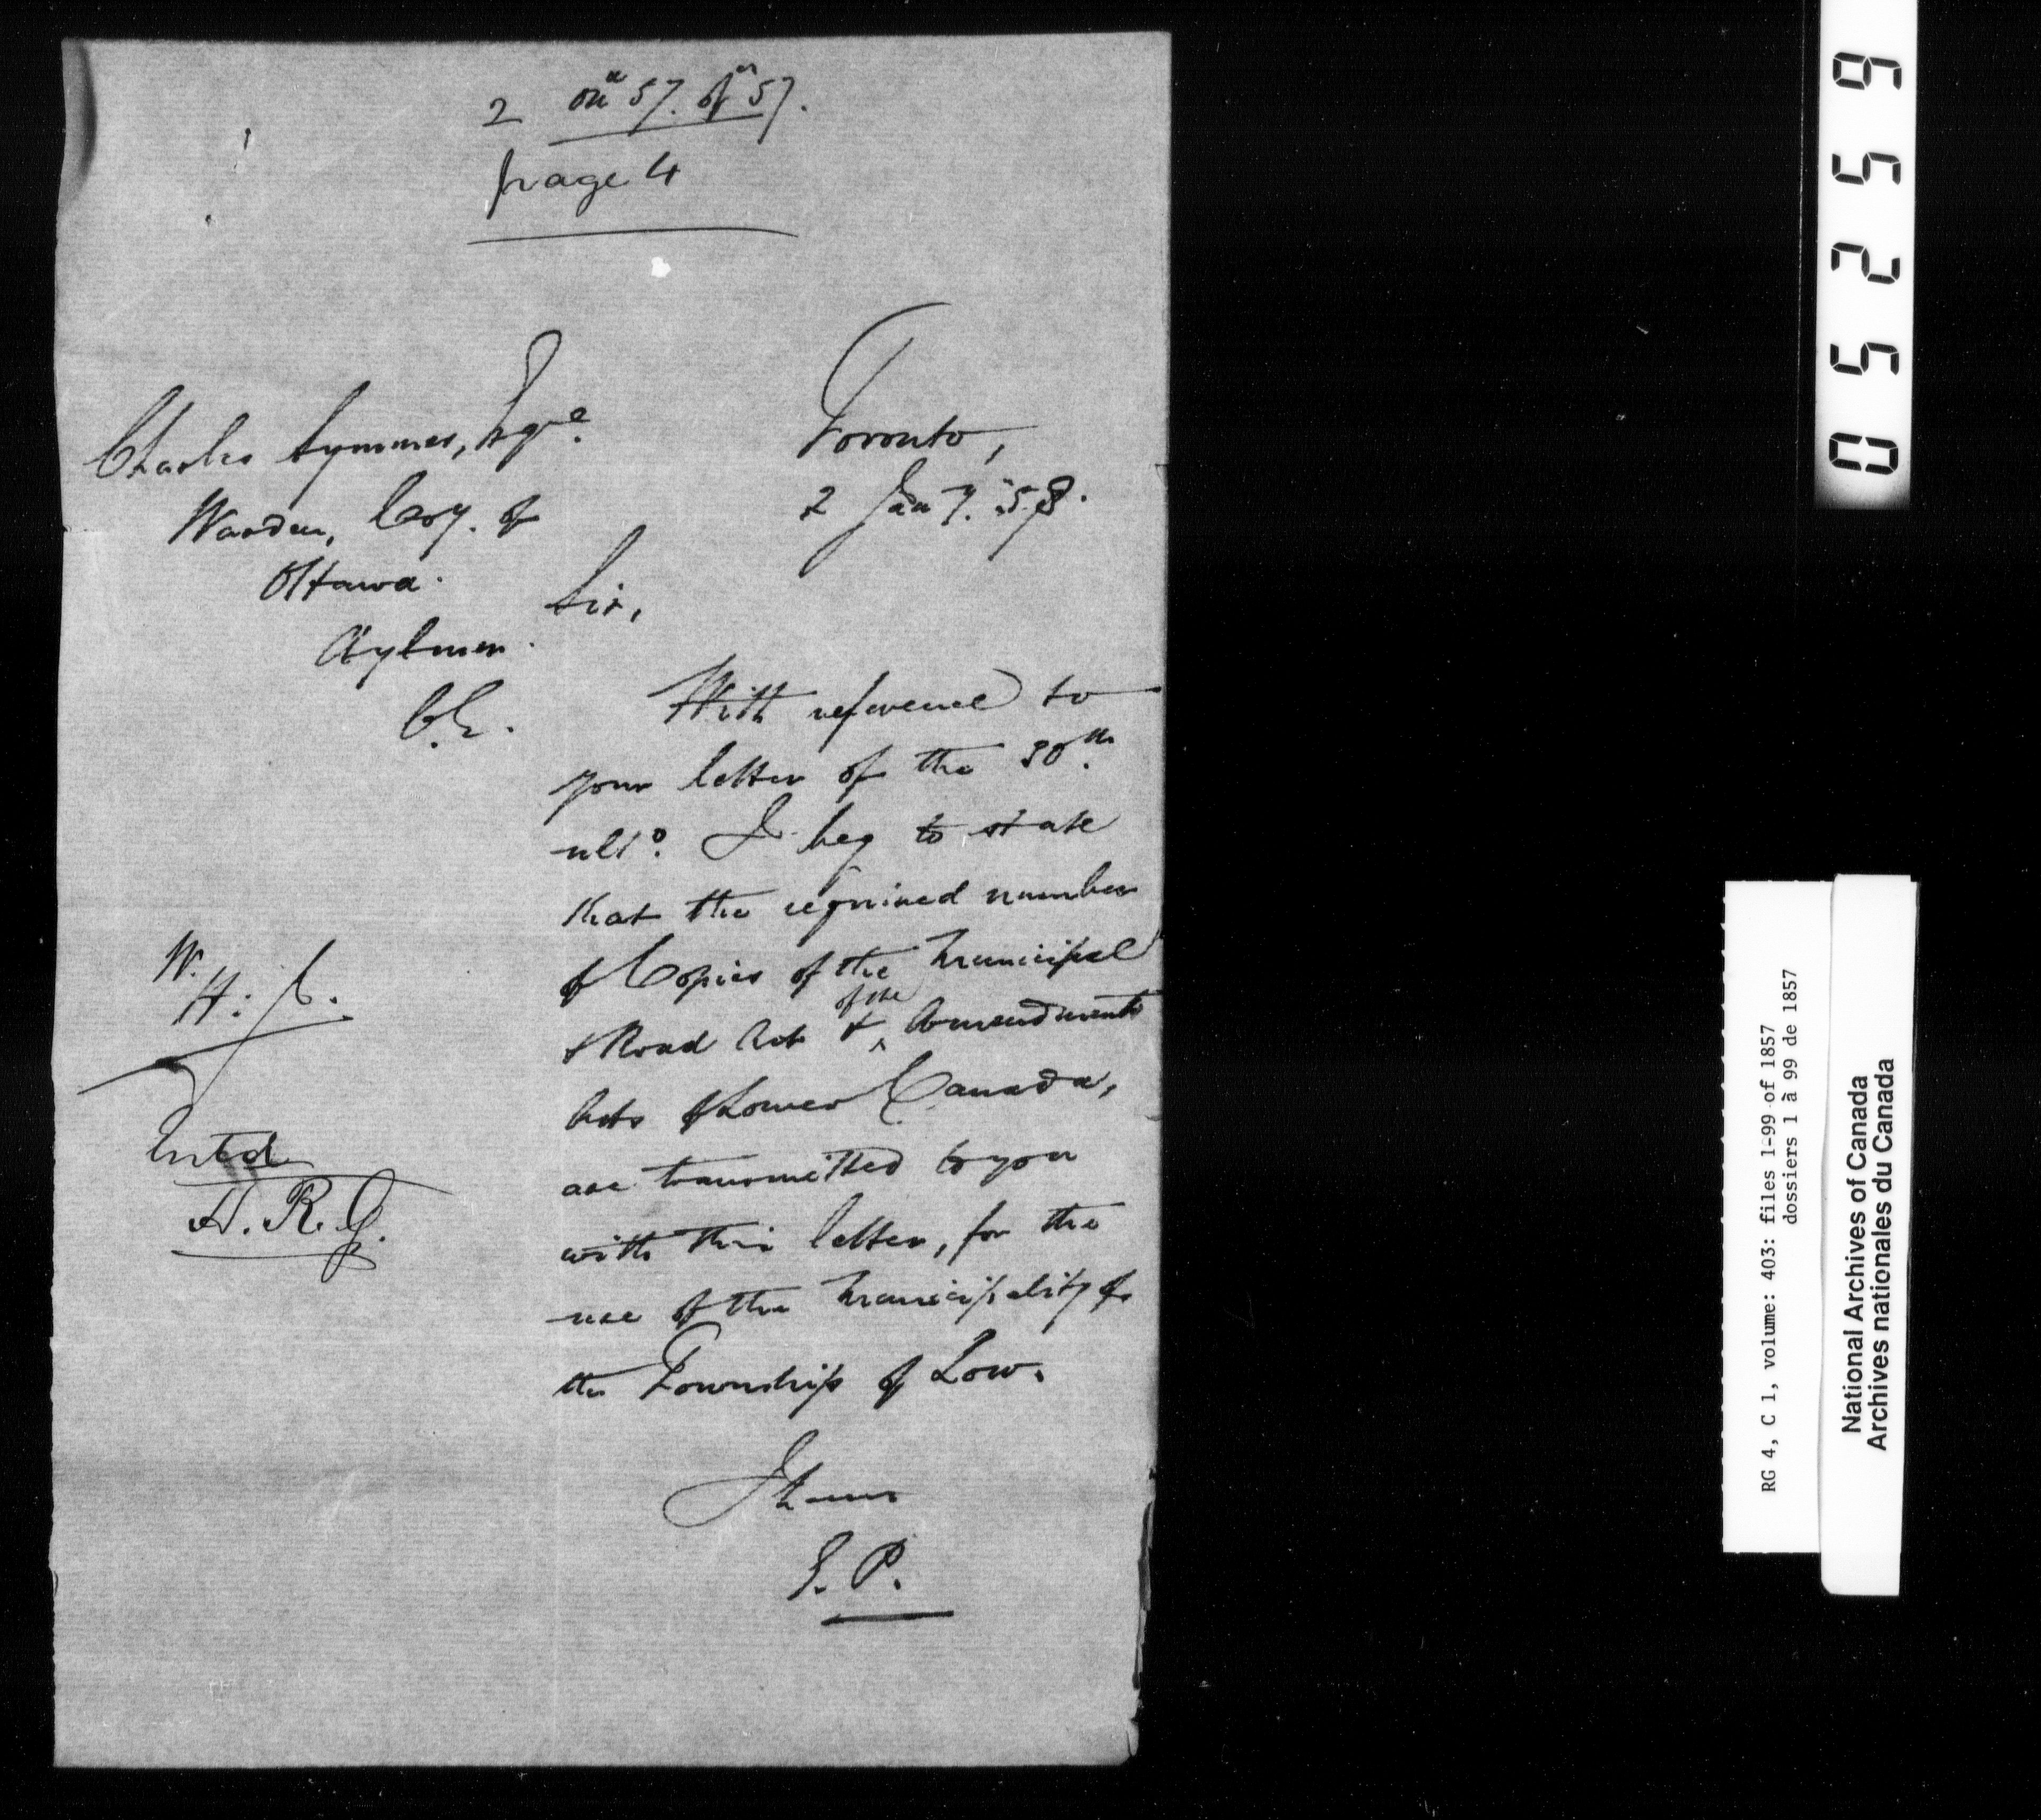 2 on 57. of 57.
page 4
Charles Symmes, Esqre.
Warden, Coy. of
Ottawa.
Aylmer.
C.E.
Toronto,
2 Jany. 58.
Sir,
With reference to
your letter of the 30th.
ulto. I beg to state
that the required number
of Copies of the Municipal
& Road Act & of the Amendments
Acts of Lower Canada,
are transmitted to you
with this letter, for the
use of the Municipality of
the Township of Low.
I h—
E. P.
W.
H. C.
Entd
H. R. G.
05259
RG 4, C 1, volume: 403: files 1-99 of 1857
dossiers 1 à 99 de 1857
National Archives of Canada
Archives nationales du Canada